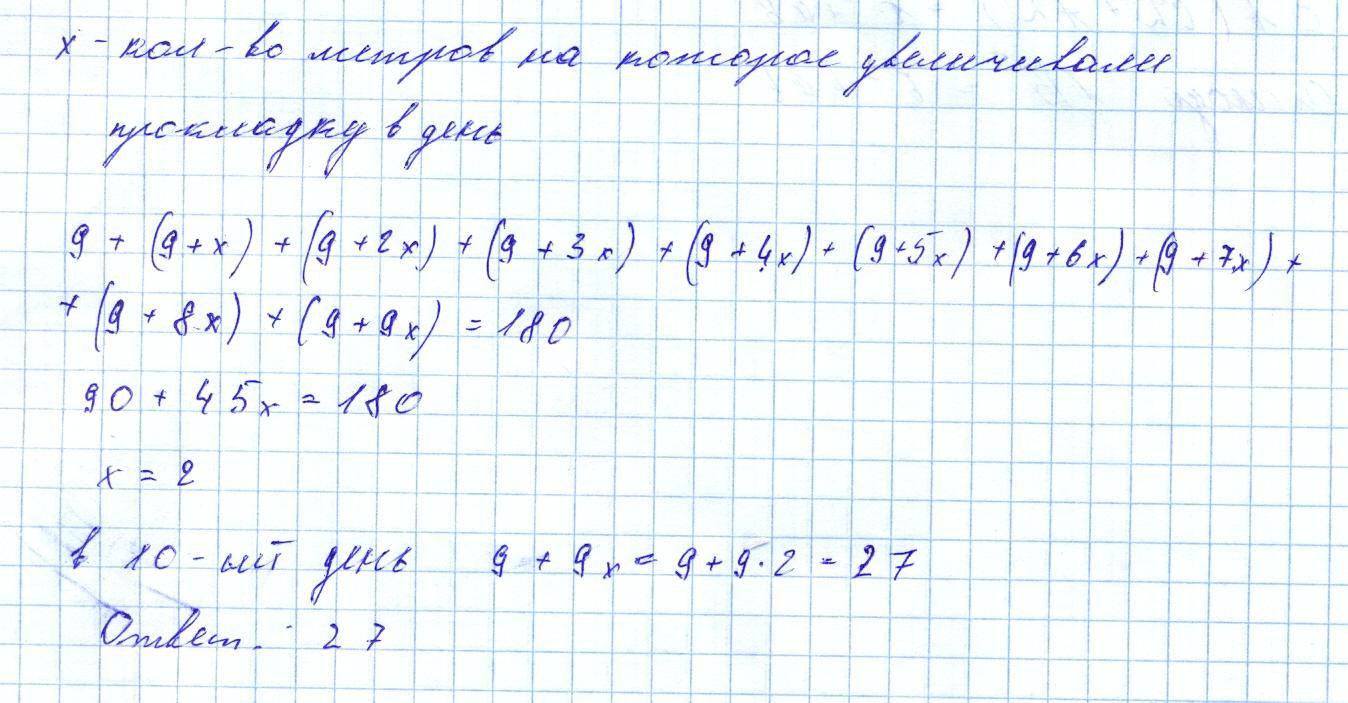 х - кол-во метров на которое увеличивали
прокладку в день
9 + (9+x) + (9+2x) + (9+3x) + (9+4x) + (9+5x) + (9+6x) + (9+7x) +
+ (9+8x) + (9+9x) = 180
90 + 45x = 180
x = 2
в 10-ый день 9 + 9x = 9+9·2 = 27
Ответ: 27